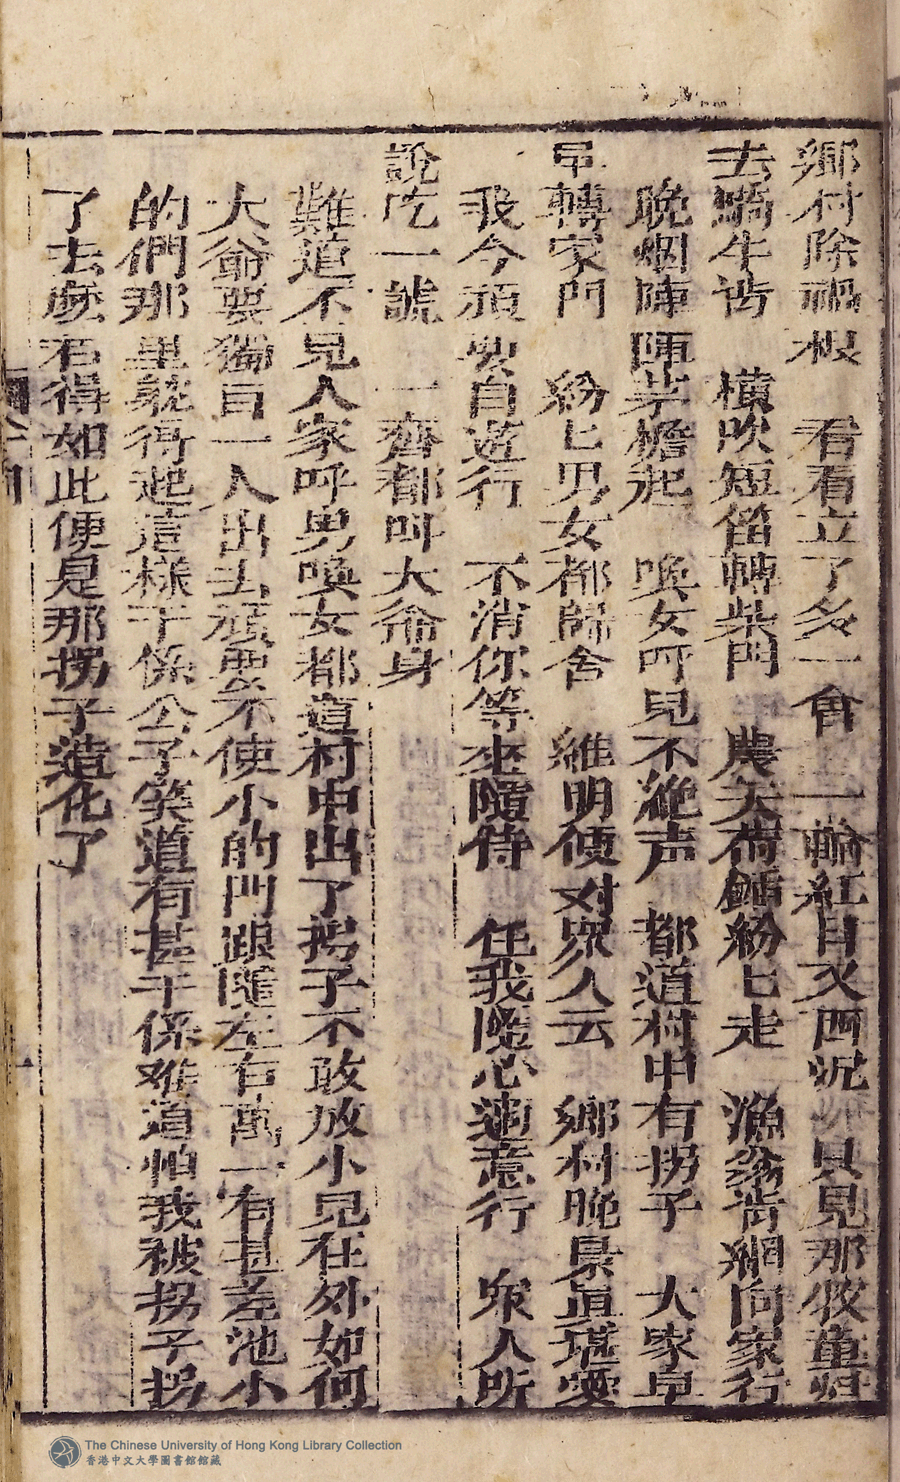 鄉村除禍根　看看立了多一會　一輪紅日又西沉　只見那牧童歸
去騎牛背　橫吹短笛轉柴門　農夫荷鋤紛匕走　漁翁背網向家行
晚烟陣陣茅檐起　喚女呼兒不絶声　都道村中有拐子　大家早
早轉家門　紛匕男女都歸舍　維明便对眾人云　鄉村晚景真堪愛
我今須要自遊行　不消你等來隨侍　任我隨心適意行　眾人所
說吃一諕　一齊都叫大爺身
難道不見人家呼男喚女都道村中出了拐子不敢放小兒在外如何
大爺要獨自一人出去頑耍不使小的們跟隨左右萬一有甚差池小
的們那里躭得起這樣干係公子笑道有甚干係难道怕我被拐子拐
了去麽若得如此便是那拐子造化了
The Chinese University of Hong Kong Library Collection
香港中文大學圖書館館藏